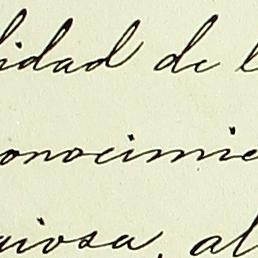 lidad de l
onocimie
giosa, al